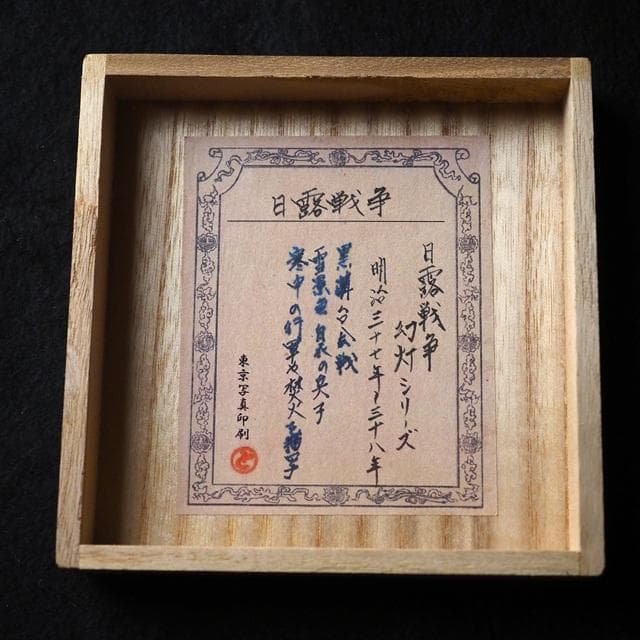 日露戦争
日露戦争
幻灯シリーズ
明治三十七年〜三十八年
黒溝台会戦
雪景 の兵子
寒中の行軍や焚火を描写
東京写真印刷